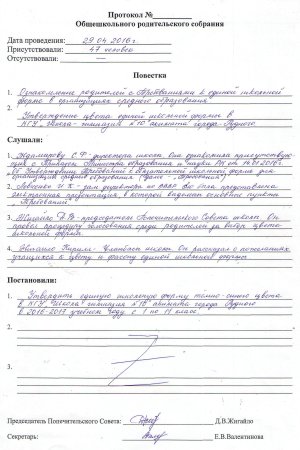 Протокол №
Общешкольного родительского собрания
Дата проведения: 29.04.2016г.
Присутствовали: 47 человек
Отсутствовали: —
Повестка
1. Ознакомление родителей с Требованиями к единой школьной
форме в организациях среднего образования
2. Утверждение цвета единой школьной формы в
КГУ „Школа-гимназия №10 акимата города Рудного
Слушали:
1. С.Ф. директора школы. Она ознакомила присутствую
щих с Приказом Министра образования и науки РК от 14.01.2016г.
„Об утверждении Требований к обязательной школьной форме для
организаций среднего образования"
2. И.К. – зам директора по Была представлена
презентация, в которой выделены основные пункты
„Требований"
3. Жигайло Д.В. председателя Попечительского Совета школы. Он
провел процедуру голосования среди родителей за выбор цвета
школьной формы.
4. школы. Он рассказал о пожеланиях
учащихся к цвету и фасону единой школьной формы
Постановили:
1. Утвердить единую школьную форму темно-синего цвета
в КГУ „Школа-гимназия №10 акимата города Рудного
в 2016-2017 учебном году с 1 по 11 класс.
2.
3.
4.
Председатель Попечительского Совета: Д.В.Жигайло
Секретарь: Е.В.Валентинова